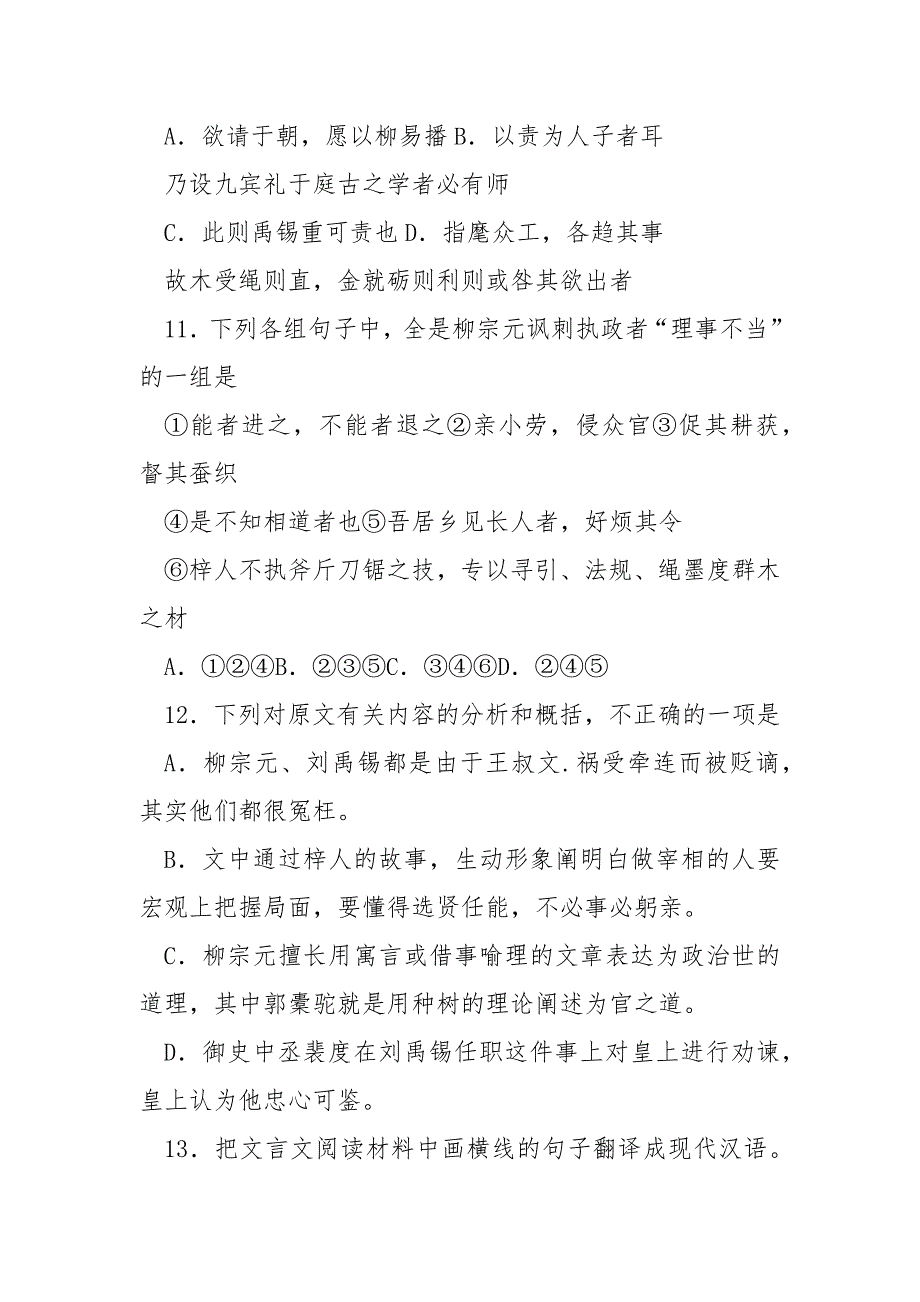 A．欲请于朝，愿以柳易播B．以责为人子者耳
乃设九宾礼于庭古之学者必有师
C．此则禹锡重可责也D．指麾众工，各趋其事
故木受绳则直，金就砺则利则或咎其欲出者
11．下列各组句子中，全是柳宗元讽刺执政者“理事不当”
的一组是
①能者进之，不能者退之②亲小劳，侵众官③促其耕获，
督其蚕织
④是不知相道者也⑤吾居乡见长人者，好烦其令
⑥梓人不执斧斤刀锯之技，专以寻引、法规、绳墨度群木
之材
A．①②④B．②③⑤C．③④⑥D．②④⑤
12．下列对原文有关内容的分析和概括，不正确的一项是
A．柳宗元、刘禹锡都是由于王叔文.祸受牵连而被贬谪，
其实他们都很冤枉。
B．文中通过梓人的故事，生动形象阐明白做宰相的人要
宏观上把握局面，要懂得选贤任能，不必事必躬亲。
C．柳宗元擅长用寓言或借事喻理的文章表达为政治世的
道理，其中郭橐驼就是用种树的理论阐述为官之道。
D．御史中丞裴度在刘禹锡任职这件事上对皇上进行劝谏，
皇上认为他忠心可鉴。
13．把文言文阅读材料中画横线的句子翻译成现代汉语。